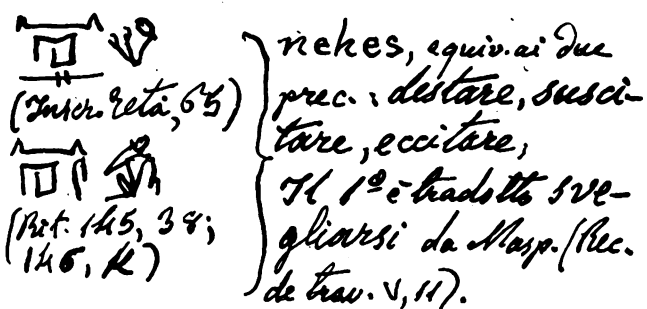 𓈖𓉔𓊃
(Inscr. Retà, 65)
𓈖𓉔𓋴
(Rit. 145, 38;
146, K)
nehes, equiv. ai due
prec.: destare, susci-
tare, eccitare;
Il 1º è tradotto sve-
gliarsi da Masp. (Rec.
de trav. V, 11).